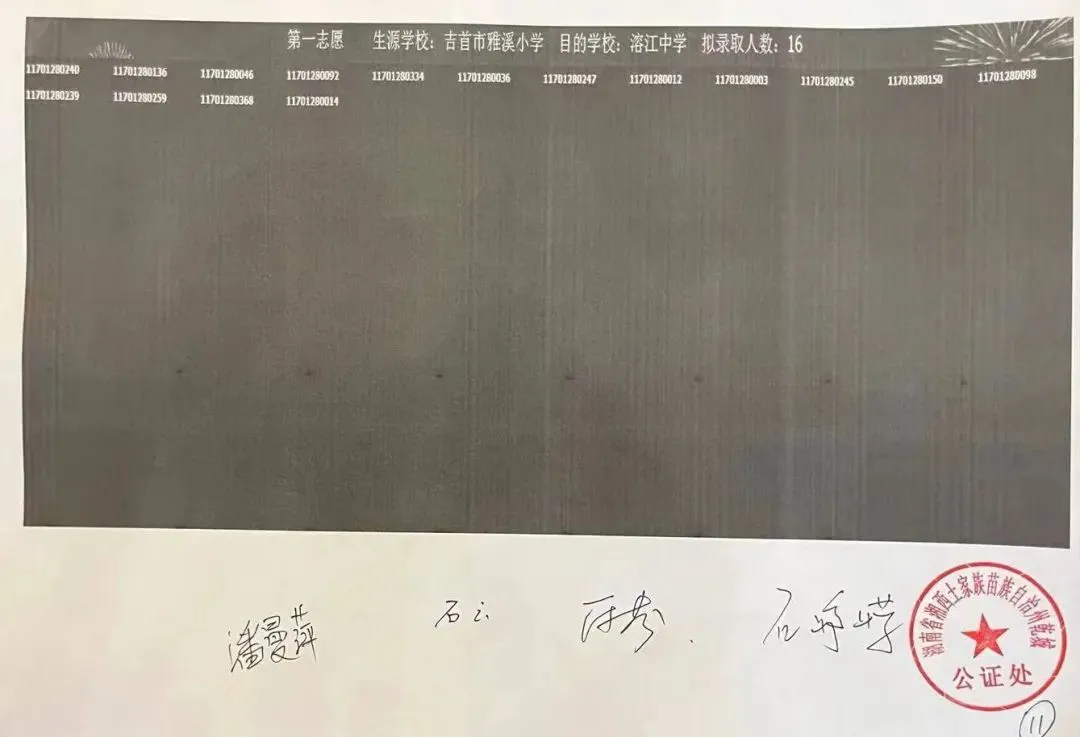 第一志愿 生源学校：吉首市雅溪小学 目的学校：溶江中学 拟录取人数：16
11701280240 11701280136 11701280046 11701280092 11701280334 11701280036 11701280247 11701280012 11701280003 11701280245 11701280150 11701280098
11701280239 11701280259 11701280368 11701280014
潘曼萍 石云
湖南省湘西土家族苗族自治州乾城
公证处
11